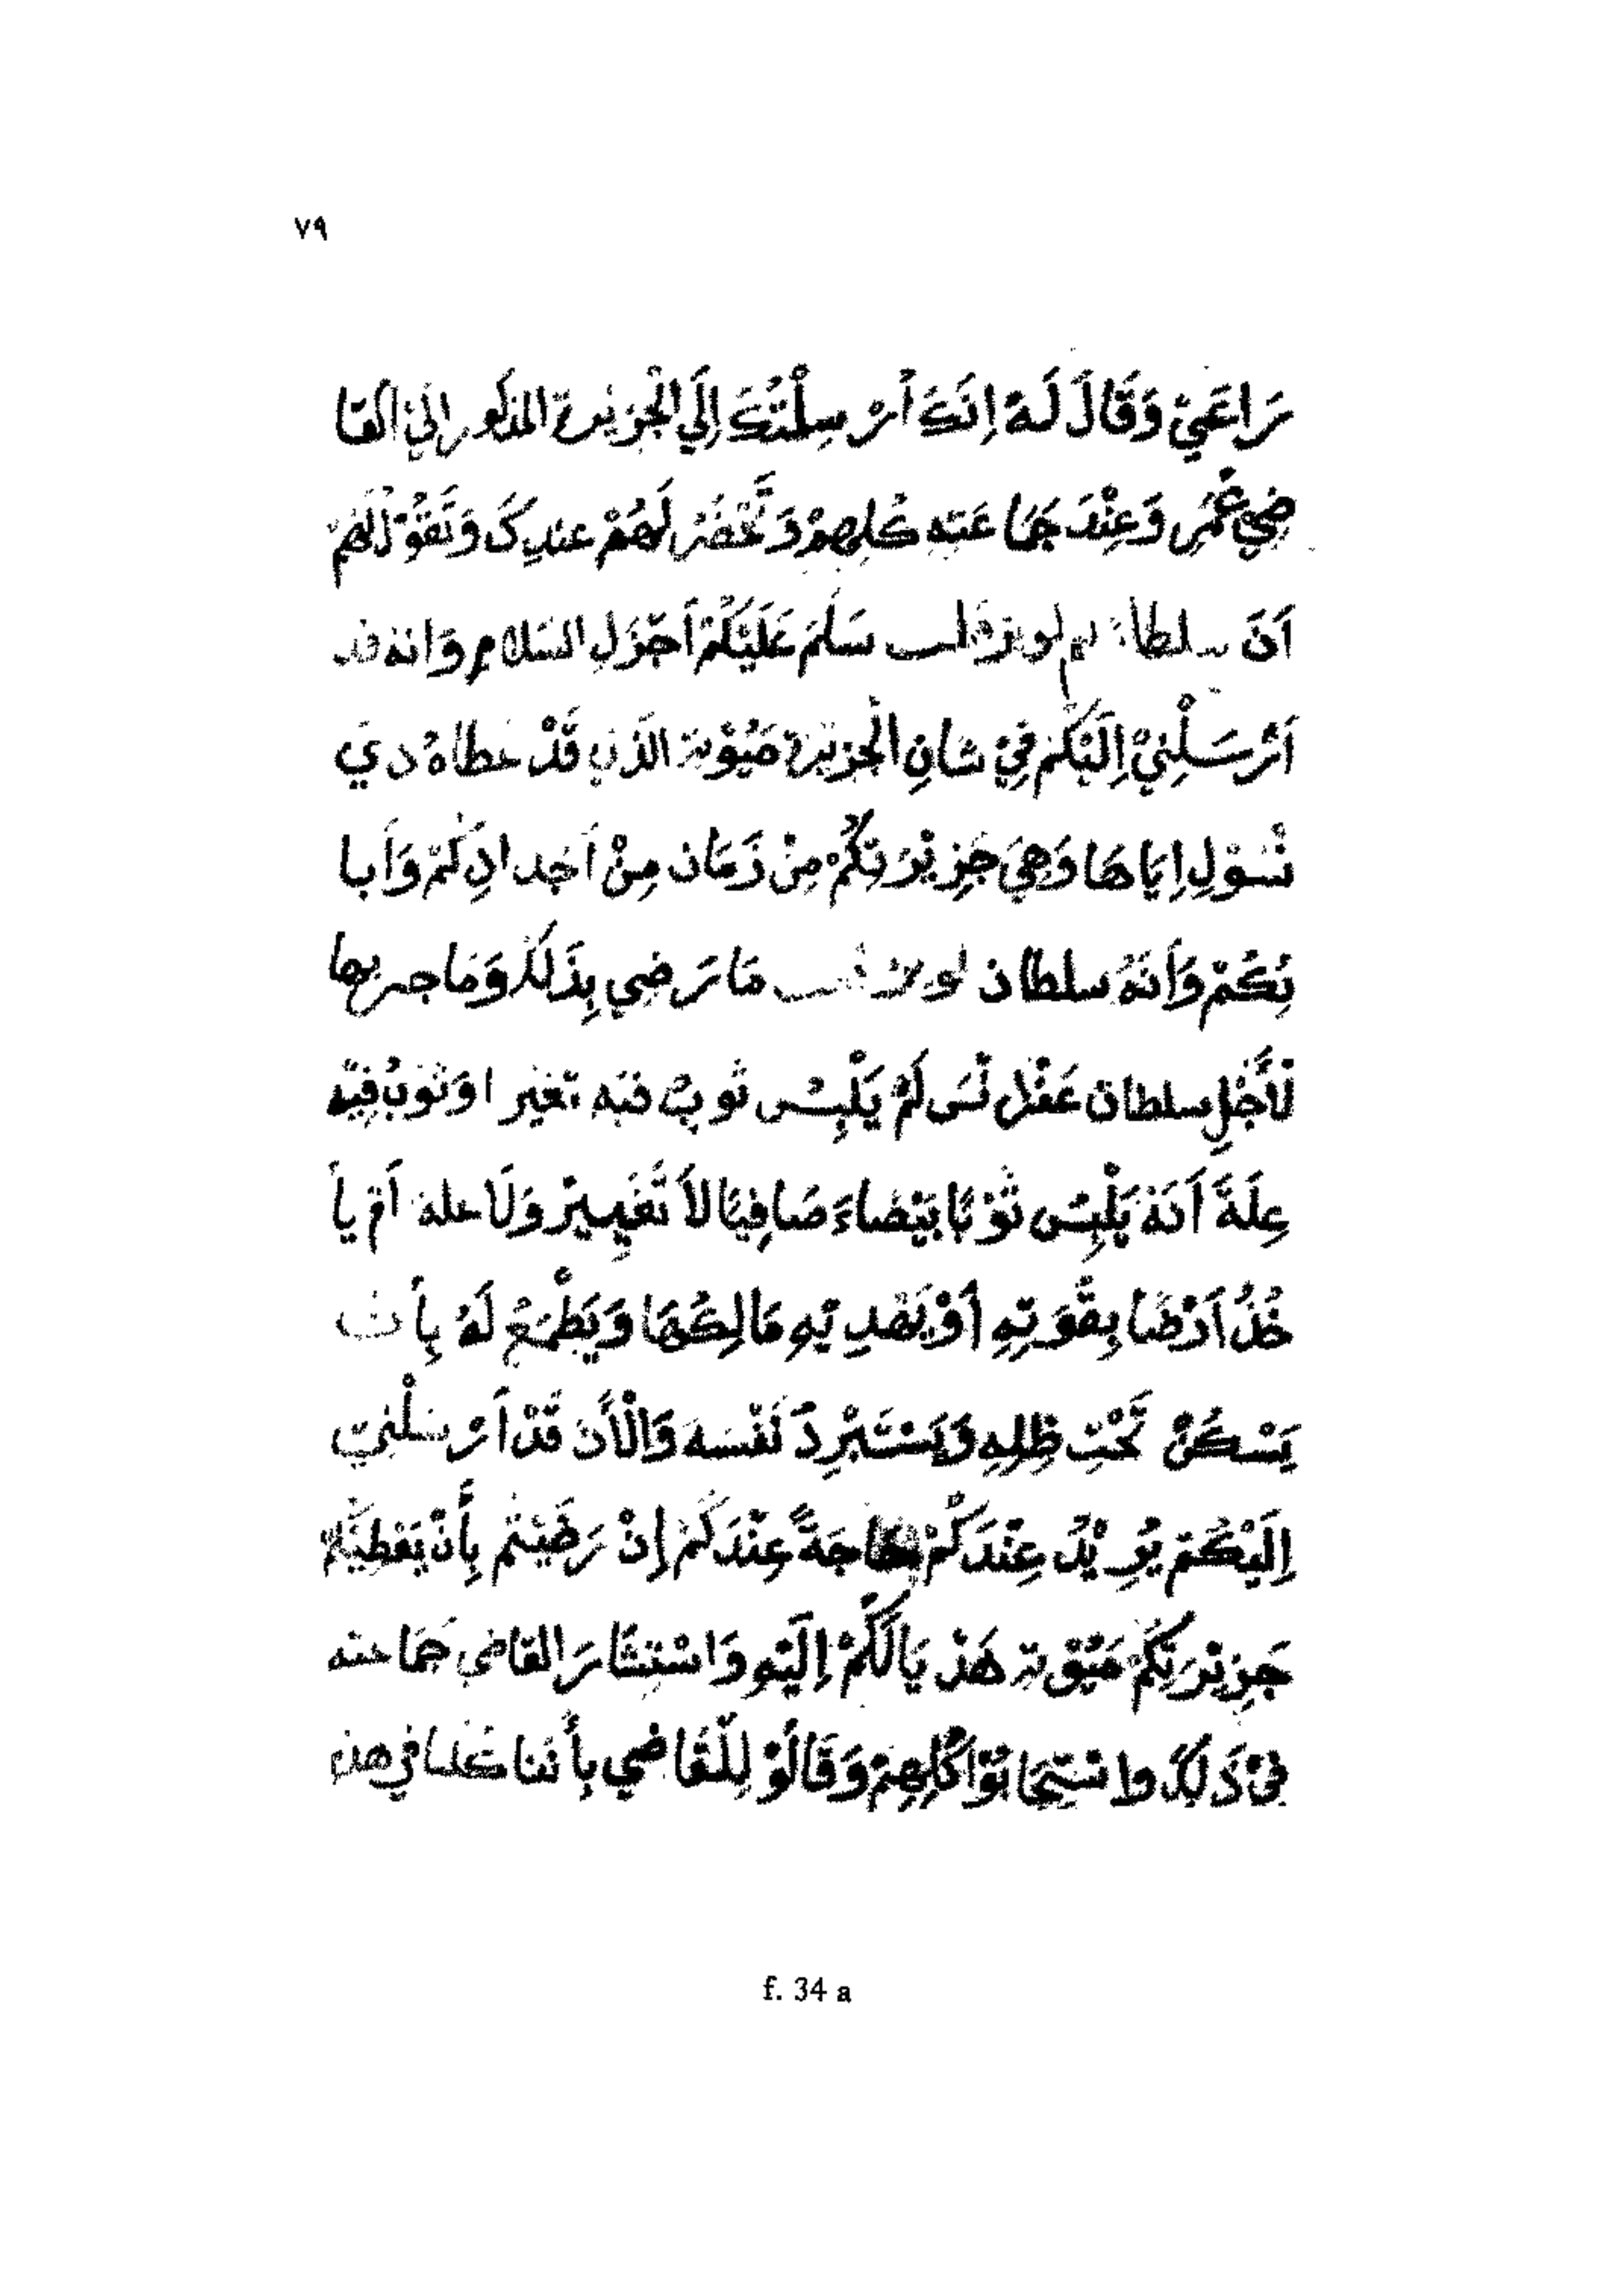 ٧٩
رَاعَيْ وَقَالَ لَهُ اِنَكَ اَرْسِلْتُكَ اِلَي الْجَزِيْرة المذكور اِلَيْ القا
ضِيْ عُمَرِ وَعِنْدَ جَمَاعَتِهِ كُلِهِمْ وَتَحْضَرُ لَهُمْ عندِكَ وَتَقُوْلُ لَهُمْ
اَنَ سلطان سَلَمَ عَلَيْكُمْ اَجْزَلِ السَلام وَانه قد
اَرْسَلَنِيْ اِلَيْكُمْ فِيْ شانِ الْجزيرة مَيُوْنة الذي قَدْ عطاهُ دي
نَسْوْلِ اِيَاهَا وَهِيَ جَزِيْرَتِكُمْ مِنْ زَمَان مِنْ اَجْدادِكُمْ وَاَبا
ئِكُمْ وَاَنَهُ سلطان مَا رَضِي بِذَلَكَ وَمَا جبر بها
لَأَجْلِ سلطان عَقْلَ لَمْ يَلْبِسْ ثوبٌ فيه تغير اوثَوْبٌ فِيْه
عِلَةً اَنَهْ يَلْبِسْ ثَوْبًا بَيْضاءَ صَافِيًا لاَ تَغَيِيرْ وَلَا علة اَمْ يا
خُذُ اَرْضًا بِقُوَتِهِ اَوْ يَهْدِيْهِ مَالِكُهَا وَيَطْمَعُ لَهُ بِأَن
يَسْكُنُ تَحْتِ ظِلِهِ وَيَسْتَبْرِدَ نَفْسَهَ وَالْأَن قَدْ اَرْسَلْنِيْ
اِلَيْكُمْ يُرِيْدُ عِنْدَكُمْ حَاجَةً عِنْدَكُمْ اِنْ رَضَيْتم بِأَنْ يَعْطِيَهُ
جَزِيْرَتَكُمْ مَيُوْنة هَذْ يَالَكُمْ اِلَيْهِ وَاسْتِشَارَ القاضي جَمَاعته
فِيْ ذَلِكَ وا سْتِجَابُوْا كُلِهِمْ وَقَالَوْ لِلْقَاضِي بِأَننا في هذه
f. 34 a